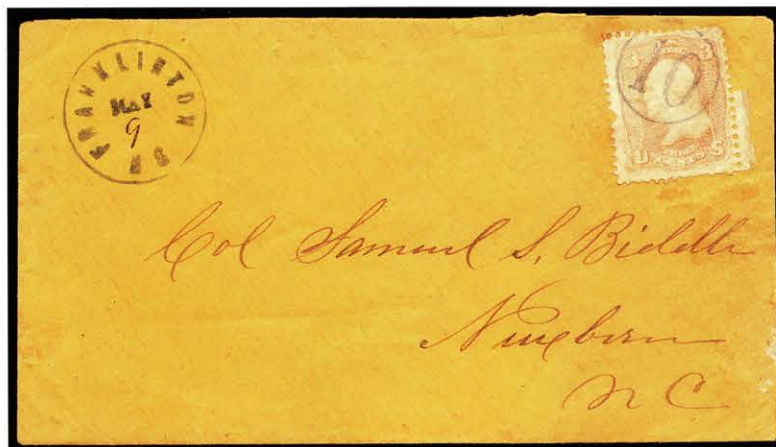 FRANKLINTON NC
MAY
9
10
3 3
U CENTS S
Col Samuel S. Bidelle
Newbern
N C